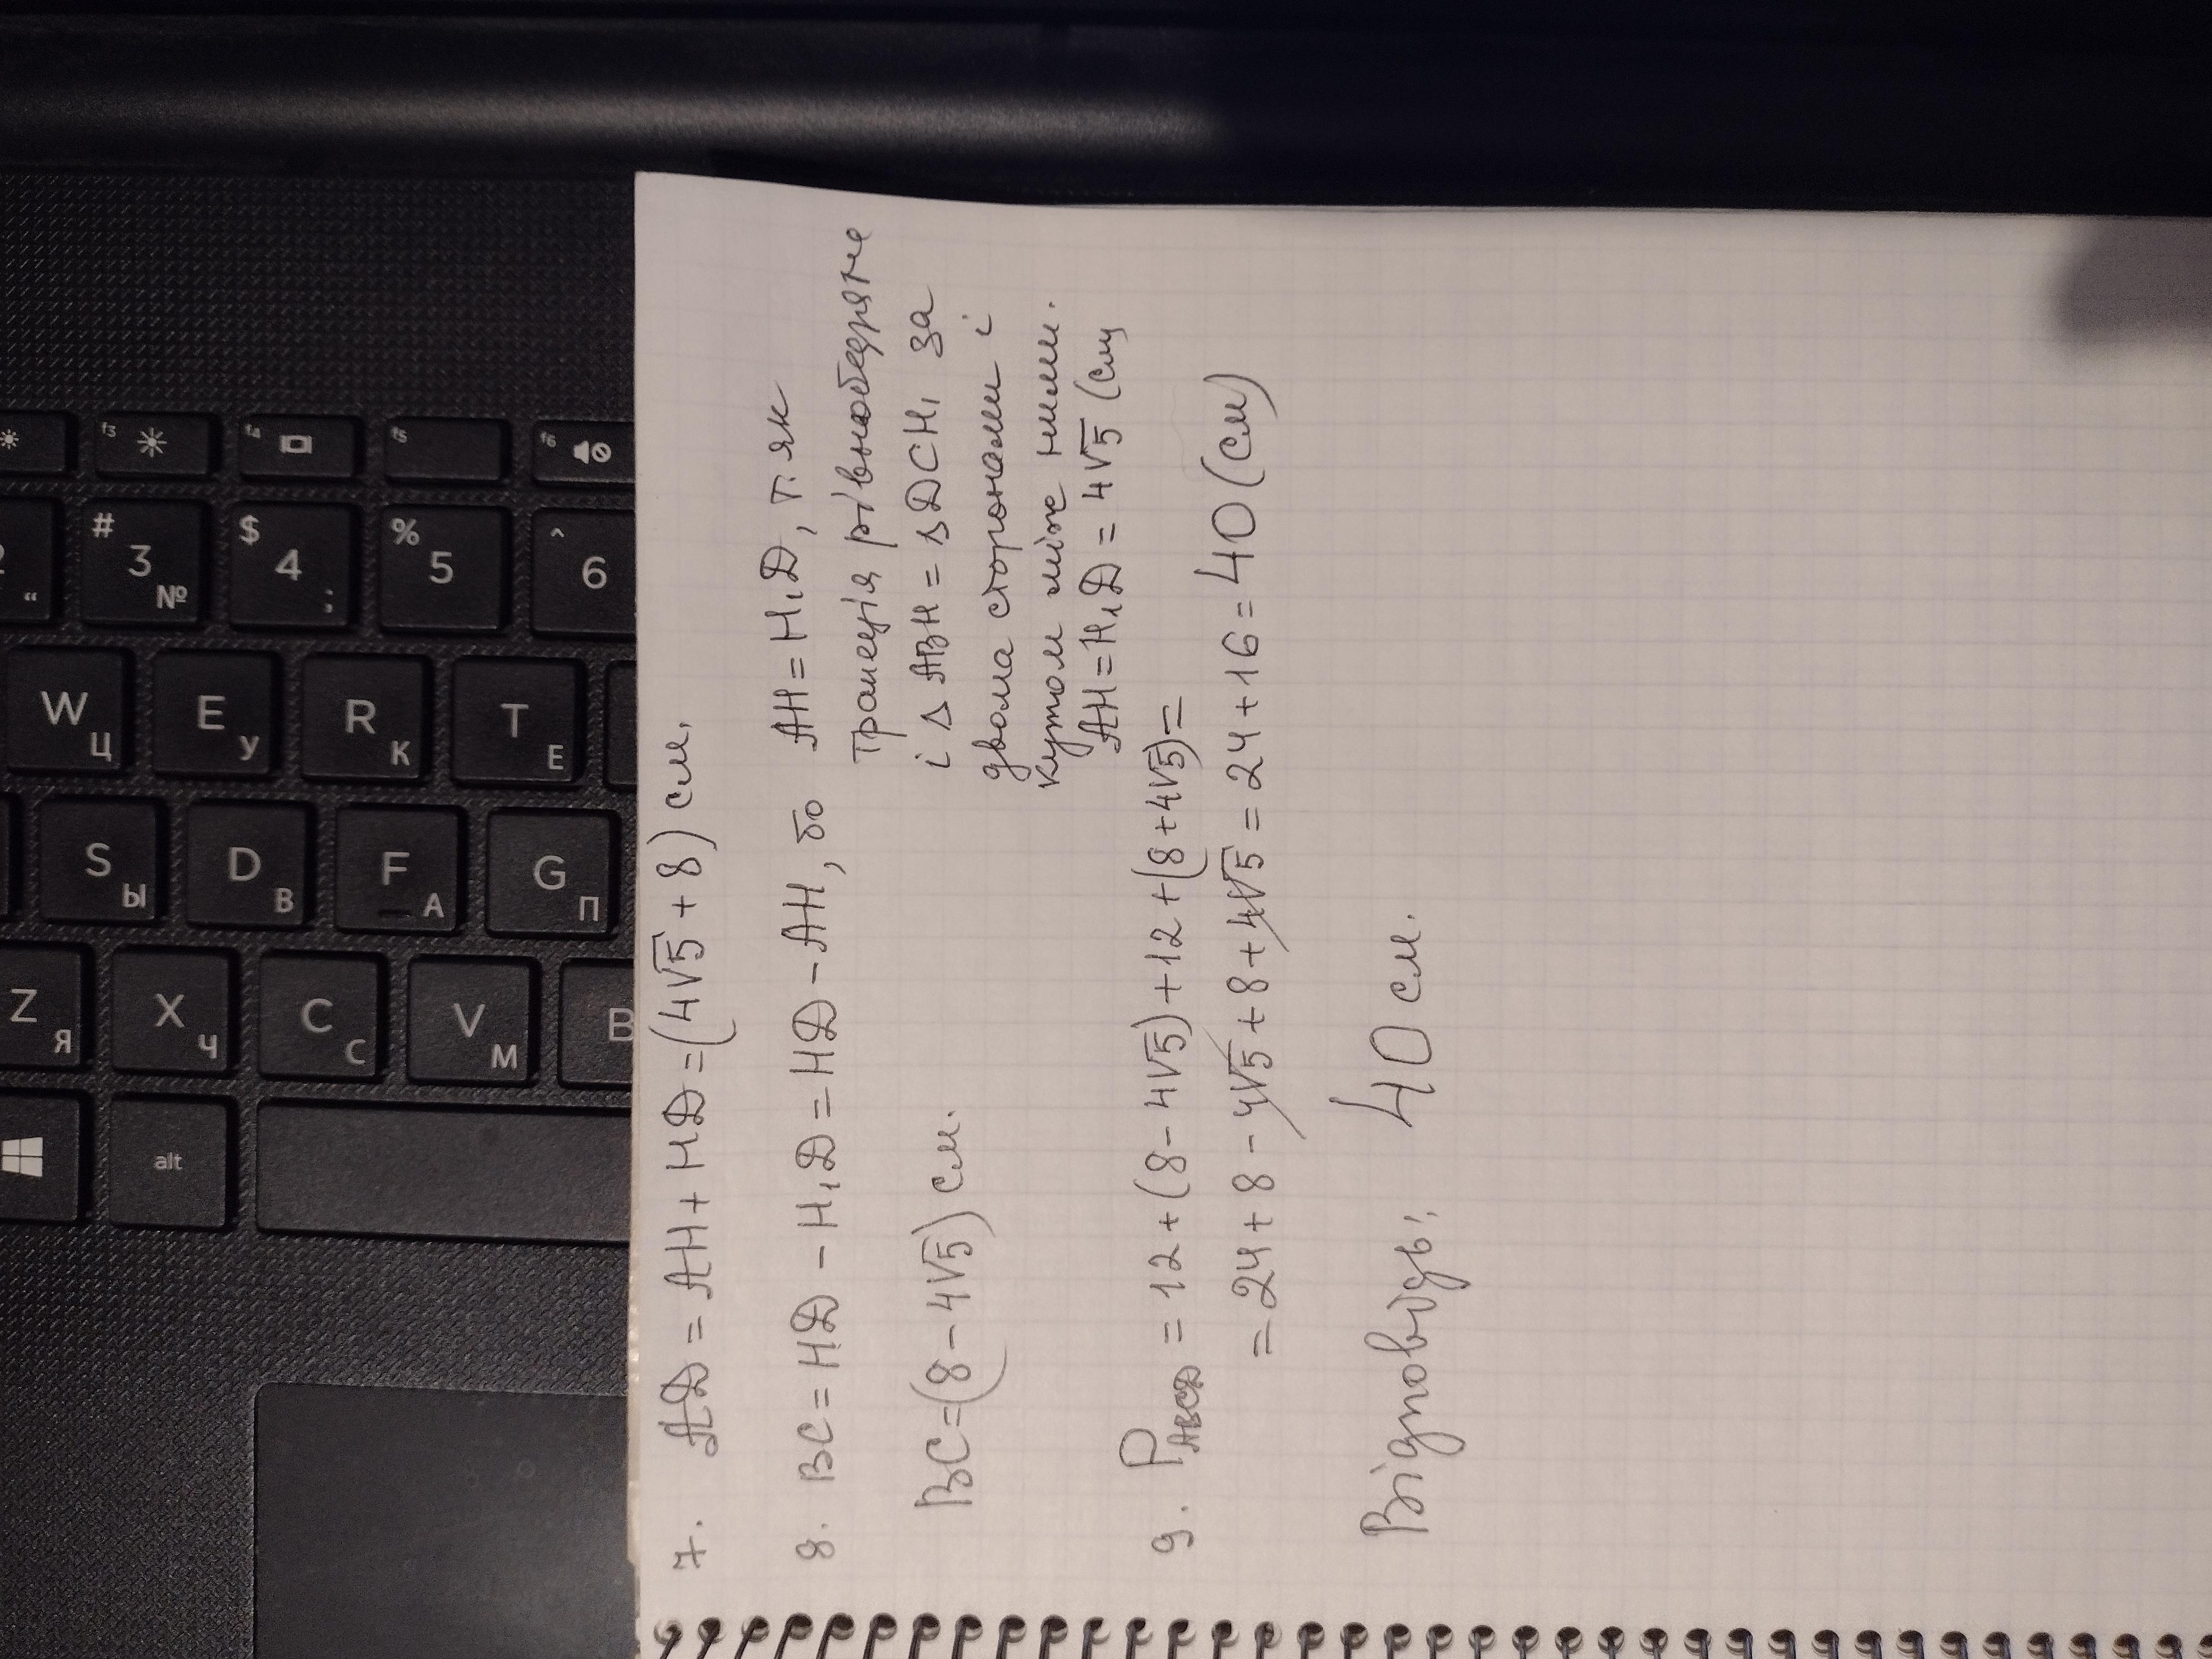 7. AD = AH + HD = (4√5 + 8) см.
8. BC = HD - H₁D = HD - AH, бо AH = H₁D, т. як
трапеція рівнобедрене
і △ ABH = △ DCH₁ за
двома сторонами і
кутом між ними.
AH = H₁D = 4√5 (см)
BC = (8 - 4√5) см.
9. P ABCD = 12 + (8 - 4√5) + 12 + (8 + 4√5) =
= 24 + 8 - 4√5 + 8 + 4√5 = 24 + 16 = 40 (см)
Відповідь: 40 см.
f3 f4 f5 f6
# 3 № $ 4 ; % 5 ^ 6
W Ц E У R К T Е
S Ы D В F А G П
Z Я X Ч C С V М B
alt